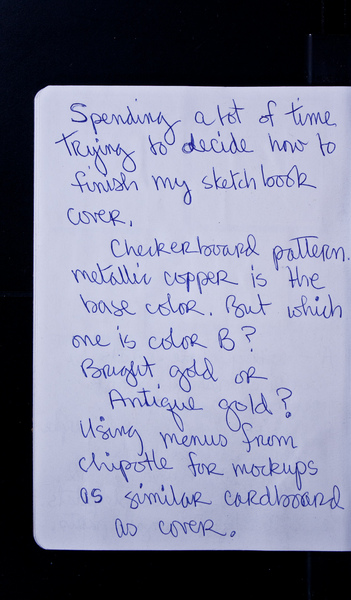 Spending a lot of time
trying to decide how to
finish my sketchbook
cover.
Checkerboard pattern.
metallic copper is the
base color. But which
one is color B?
Bright gold or
Antique gold?
Using menus from
chipotle for mockups
as similar cardboard
as cover.